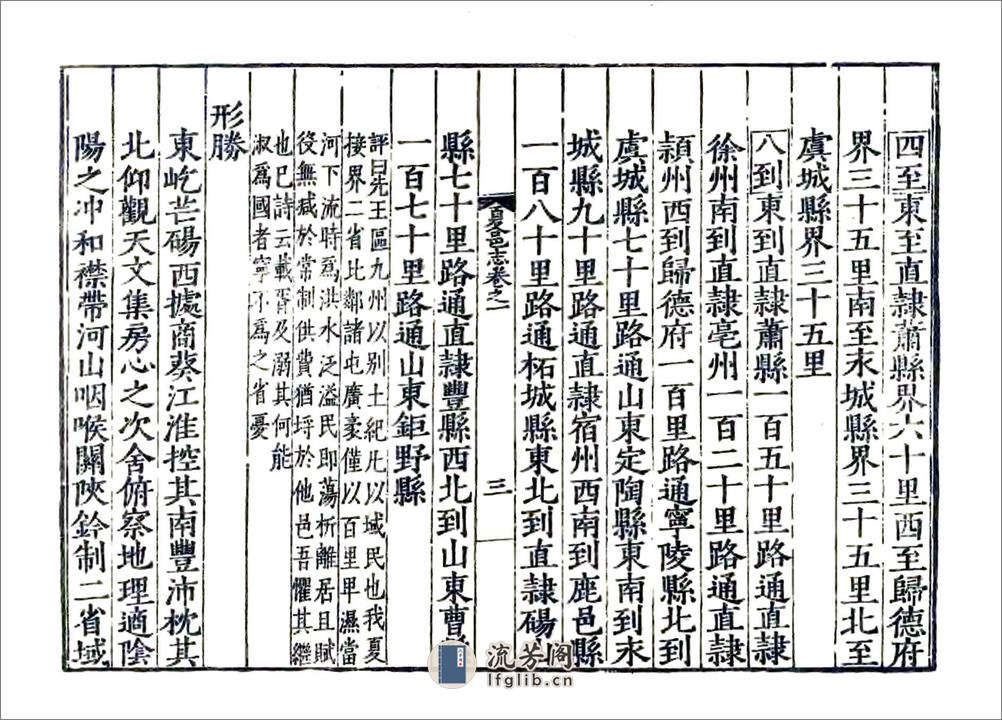 四至東至直隷蕭縣界六十里西至歸德府
界三十五里南至永城縣界三十五里北至
虞城縣界三十五里
八到東到直隷蕭縣一百五十里路通直隷
徐州南到直隷亳州一百二十里路通直隷
潁州西到歸德府一百里路通寧陵縣北到
虞城縣七十里路通山東定陶縣東南到永
城縣九十里路通直隷宿州西南到鹿邑縣
一百八十里路通柘城縣東北到直隷碭
夏邑志卷之一
三
縣七十里路通直隷豐縣西北到山東曹
一百七十里路通山東鉅野縣
評曰先王區九州以别土紀凡以域民也我夏
接界二省比鄰諸屯廣豪僅以百里卑濕當
河下流時爲洪水泛溢民即蕩析離居且賦
役無減於常制供費猶埒於他邑吾懼其繼
也已詩云載胥及溺其何能
淑爲國者寧不爲之省憂
形勝
東屹芒碭西據商蔡江淮控其南豐沛枕其
北仰觀天文集房心之次舍俯察地理適陰
陽之冲和襟帶河山咽喉關陝鈐制二省域
流芳阁
lfglib.cn